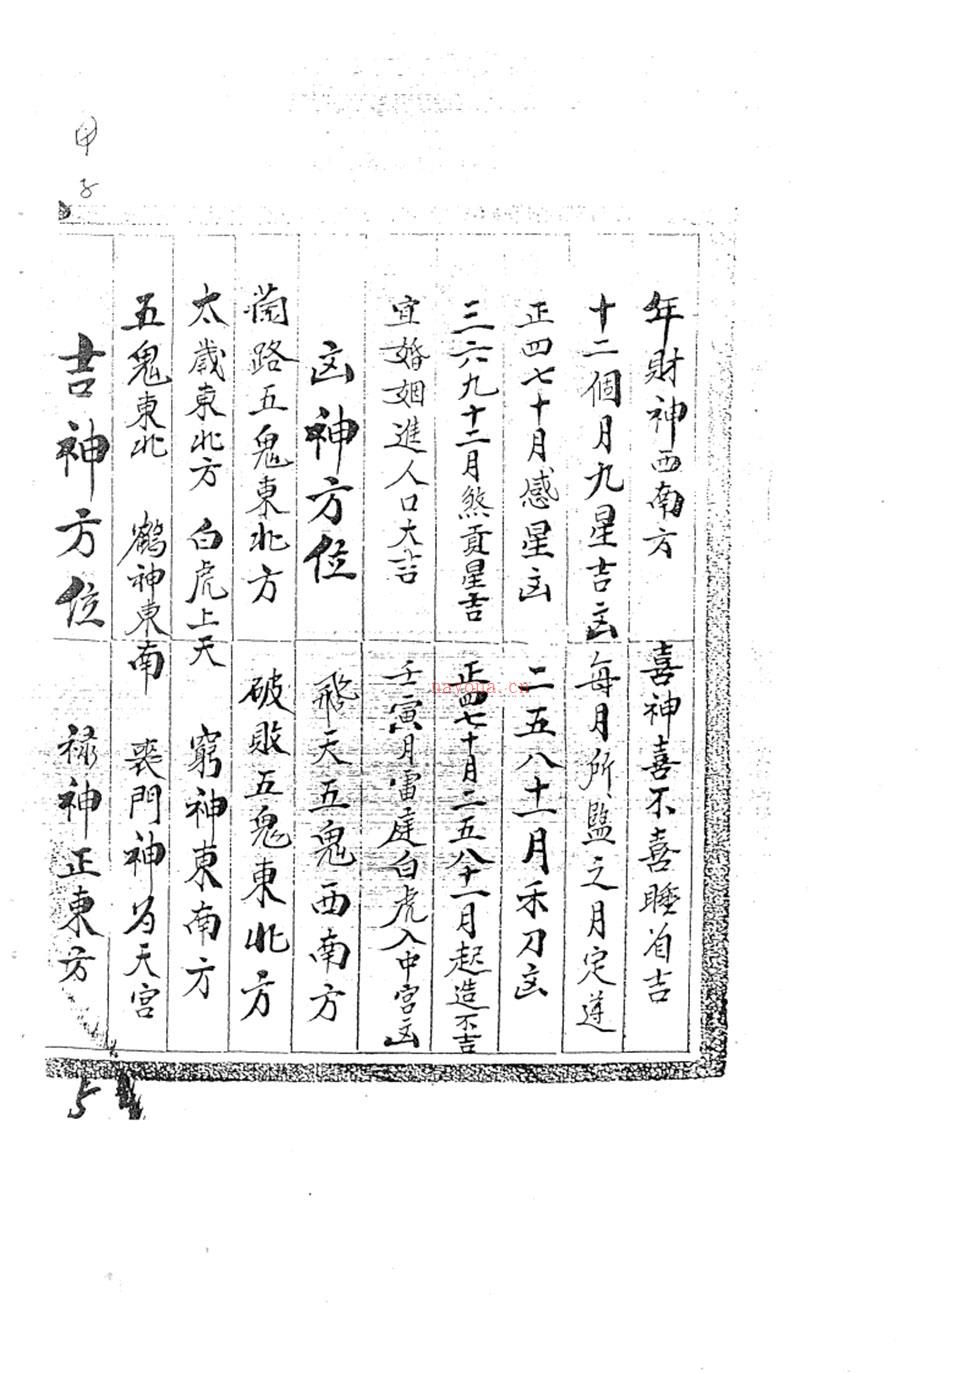 甲子
年財神西南方 喜神喜不喜睡省吉
十二個月九星吉凶每月所監之月定遵
正四七十月惑星凶 二五八十一月禾刀凶
三六九十二月煞貢星吉 正四七十月二五八十一月起造不吉
宜婚姻進人口大吉 壬寅月雷庭白虎入中宮凶
凶神方位 飛天五鬼西南方
蘭路五鬼東北方 破敗五鬼東北方
太歲東北方 白虎上天 窮神東南方
五鬼東北 鶴神東南 喪門神為天宮
吉神方位 祿神正東方
5
nayona.cn